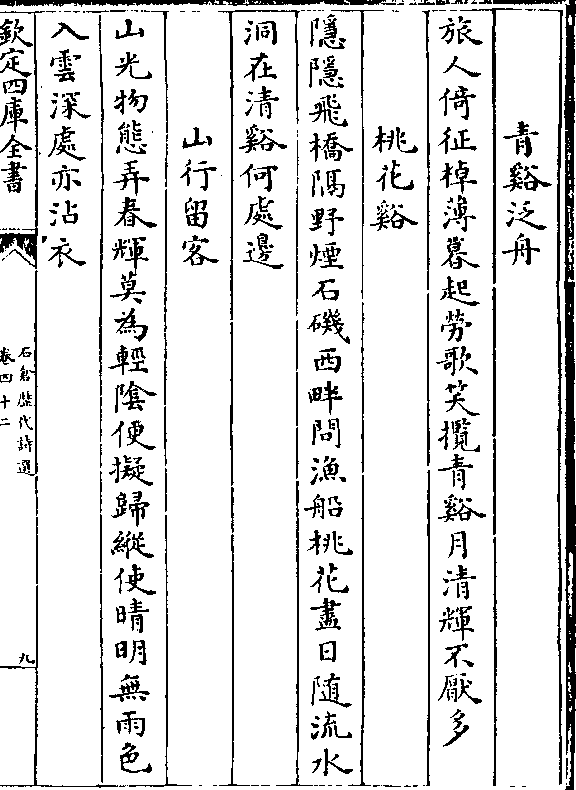 青谿泛舟
旅人倚征棹薄暮起勞歌笑攬青谿月清輝不厭多
桃花谿
隱隱飛橋隔野煙石磯西畔問漁船桃花盡日隨流水
洞在清谿何處邊
山行留客
山光物態弄春輝莫為輕陰便擬歸縱使晴明無雨色
入雲深處亦沾衣
欽定四庫全書
石倉歷代詩選
卷四十二
九